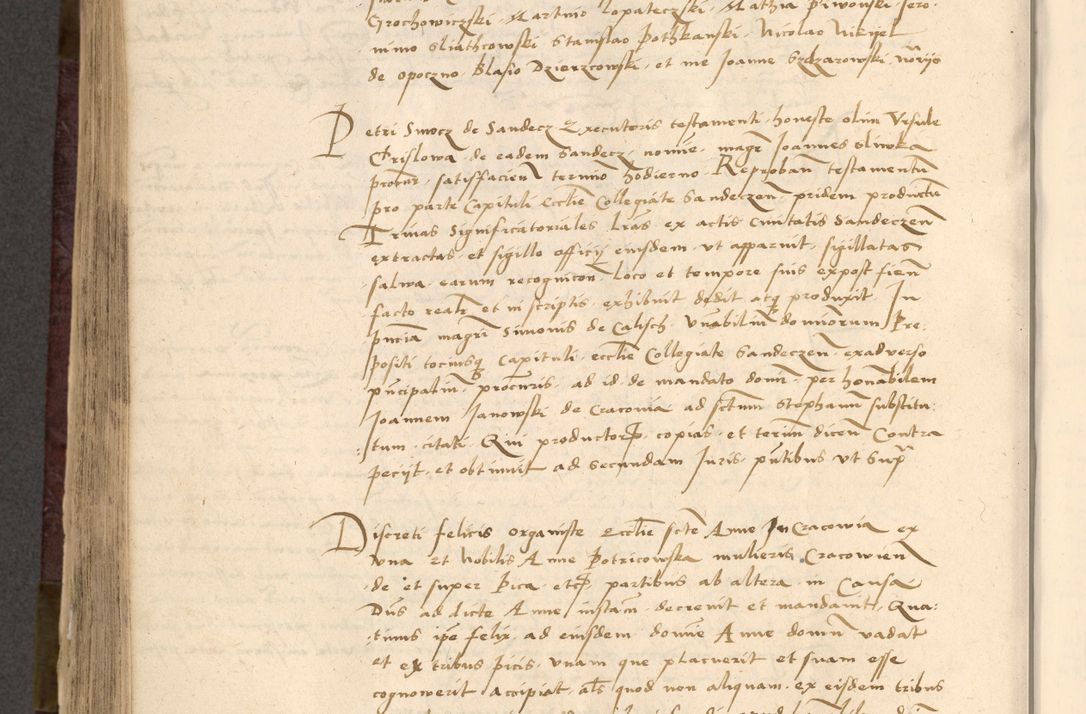 Grochowiczski, Martino Lopateczski, Mathia Piwonski Jero-
nimo Sliathcowski Stanislao Pothkanski, Nicolao Nikijel
de Opoczno, Blasio Dzierzcowski, et me Joanne
Petri Smocz de Sandecz Executoris testamenti honeste olim Vrsule
Grislowa de eadem Sandecz, nomine, magr Joannes Sliwka
procur, satisfacien termino hodierno Reproban testamentu
pro parte Capituli Ecclie Collegiate Sandeczen pridem productu
Trinas Significatoriales Lras ex actis Ciuitatis Sandeczen
extractas et sigillo officij eiusdem vt apparuit, sigillatas
salwa earum recognicon loco et tempore suis ex post fien
facto realr et in scriptis exhibuit dedit atq produxit In
pncia magri Simonis de Calisch Vnabilium dominorum Pre-
positi tociusq Capituli ecclie Collegiate Sandeczen ex aduerso
principaliu procuris, ad id de mandato domin per honabilem
Joannem Janowski de Cracouia ad sctum Stephanu substitu-
tum citati Qui productor copias et terim dicen Contra
peciit et obtinuit ad secundam Juris, pntibus vt Supr
Discreti felicis organiste Ecclie scte Anne In Cracowia ex
vna et Nobilis Anne Potricowska mulieris Cracowien
de et super Pica, etc partibus ab altera in Causa
Dns ad dicte Anne instam decreuit et mandauit, Qua-
tinus ipe felix ad eiusdem domine Anne domu vadat
et ex tribus picis vnam que placuerit et suam esse
cognowerit accipiat als quod non aliquam ex eisdem tribus